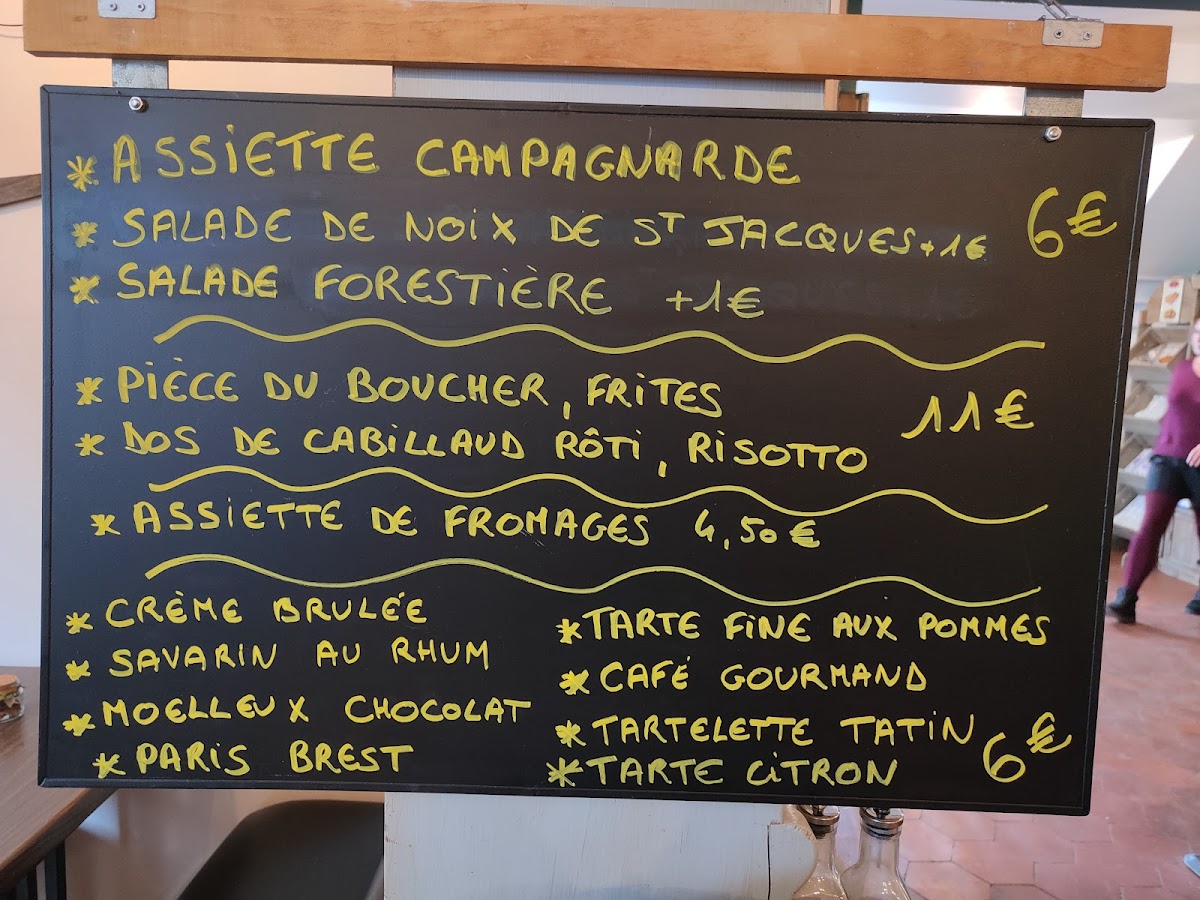 * ASSIETTE CAMPAGNARDE
* SALADE DE NOIX DE ST JACQUES +1€
6€
* SALADE FORESTIÈRE +1€
* PIÈCE DU BOUCHER, FRITES
11€
* DOS DE CABILLAUD RÔTI, RISOTTO
* ASSIETTE DE FROMAGES 4,50€
* CRÈME BRULÉE
* SAVARIN AU RHUM
* MOELLEUX CHOCOLAT
* PARIS BREST
* TARTE FINE AUX POMMES
* CAFÉ GOURMAND
* TARTELETTE TATIN
* TARTE CITRON
6€